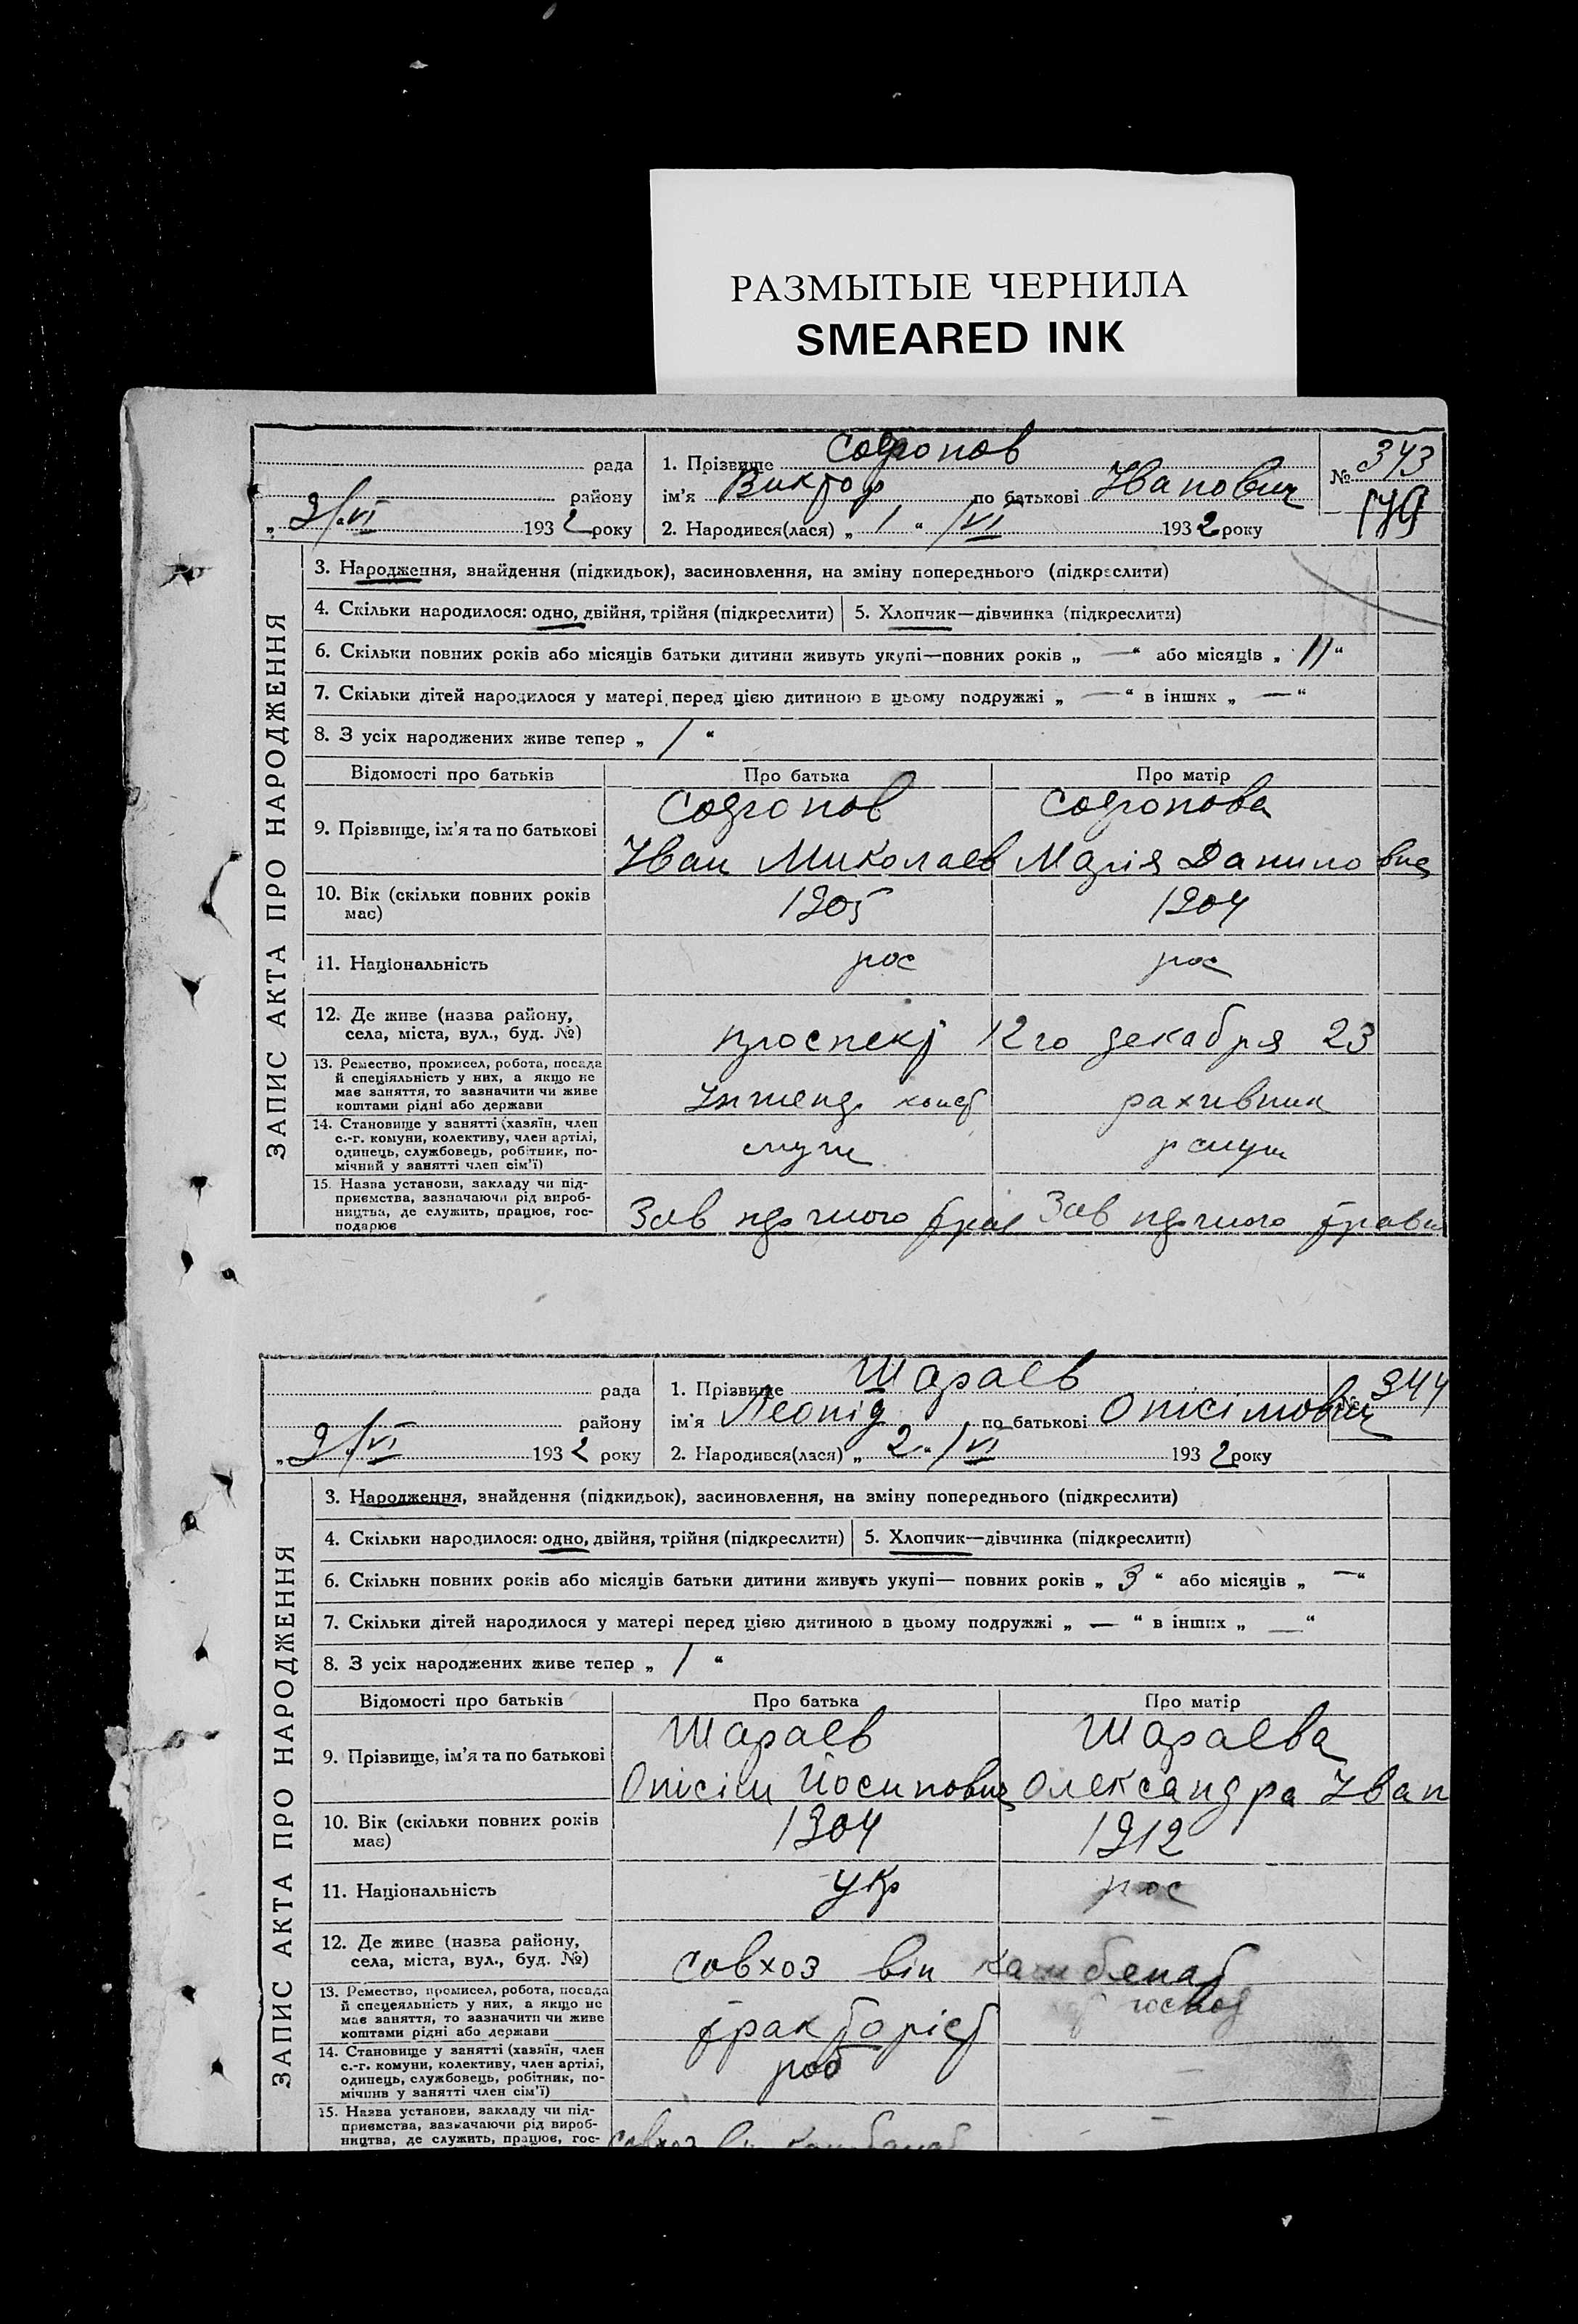 РАЗМЫТЫЕ ЧЕРНИЛА
SMEARED INK
рада
району
„ 2/VI 1932 року
1. Прізвище Софронов
ім'я Виктор по батькові Иванович
2. Народився(лася) „ 1 “ /VI 1932 року
№ 343
179
ЗАПИС АКТА ПРО НАРОДЖЕННЯ
3. Народження, знайдення (підкидьок), засиновлення, на зміну попереднього (підкреслити)
4. Скільки народилося: одно, двійня, трійня (підкреслити)
5. Хлопчик—дівчинка (підкреслити)
6. Скільки повних років або місяців батьки дитини живуть укупі—повних років „ — “ або місяців „ 11 “
7. Скільки дітей народилося у матері перед цією дитиною в цьому подружжі „ — “ в інших „ — “
8. З усіх народжених живе тепер „ 1 “
Відомості про батьків
Про батька
Про матір
9. Прізвище, ім'я та по батькові
Софронов
Иван Миколаев
Софронова
Марія Даниловна
10. Вік (скільки повних років
має)
1905
1904
11. Національність
рос
рос
12. Де живе (назва району,
села, міста, вул., буд. №)
проспект 12го декабря 23
13. Ремество, промисел, робота, посада
й спеціяльність у них, а якщо не
має заняття, то зазначити чи живе
коштами рідні або держави
Инженер
рахивник
14. Становище у занятті (хазяїн, член
с.-г. комуни, колективу, член артілі,
одинець, службовець, робітник, по-
мічний у занятті член сім'ї)
служ
15. Назва установи, закладу чи під-
приємства, зазначаючи рід вироб-
ництва, де служить, працює, гос-
подарює
Зав
Зав
рада
району
„ 2/VI 1932 року
1. Прізвище Шараев
ім'я Леонід по батькові Онісімович
2. Народився(лася) „ 2 “ /VI 1932 року
№ 344
ЗАПИС АКТА ПРО НАРОДЖЕННЯ
3. Народження, знайдення (підкидьок), засиновлення, на зміну попереднього (підкреслити)
4. Скільки народилося: одно, двійня, трійня (підкреслити)
5. Хлопчик—дівчинка (підкреслити)
6. Скільки повних років або місяців батьки дитини живуть укупі— повних років „ 3 “ або місяців „ — “
7. Скільки дітей народилося у матері перед цією дитиною в цьому подружжі „ — “ в інших „ — “
8. З усіх народжених живе тепер „ 1 “
Відомості про батьків
Про батька
Про матір
9. Прізвище, ім'я та по батькові
Шараев
Онісім Йосипович
Шараева
Олександра Иван
10. Вік (скільки повних років
має)
1904
1912
11. Національність
укр
рос
12. Де живе (назва району,
села, міста, вул., буд. №)
совхоз він
13. Ремество, промисел, робота, посада
й спецеяльність у них, а якщо не
має заняття, то зазначити чи живе
коштами рідні або держави
тракторіст
14. Становище у занятті (хазяїн, член
с.-г. комуни, колективу, член артілі,
одинець, службовець, робітник, по-
мічнив у занятті член сім'ї)
роб
—
15. Назва установи, закладу чи під-
приємства, зазначаючи рід вироб-
ництва, де служить, працює, гос-
совхоз
—